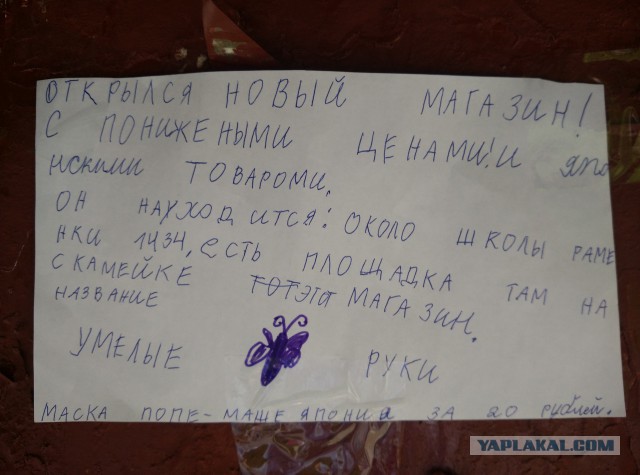 ОТКРЫЛСЯ НОВЫЙ МАГАЗИН!
С ПОНИЖЕНЫМИ ЦЕНАМИ! И ЯПО
НСКИМИ ТОВАРОМИ.
ОН НАУХОДИТСЯ: ОКОЛО ШКОЛЫ РАМЕ
НКИ 1434, ЕСТЬ ПЛОЩАДКА ТАМ НА
СКАМЕЙКЕ ТОТ ЭТОТ МАГАЗИН.
НАЗВАНИЕ
УМЕЛЫЕ РУКИ
МАСКА ПОПЕ-МАШЕ ЯПОНИЯ ЗА 20 рублей.
YAPLAKAL.COM